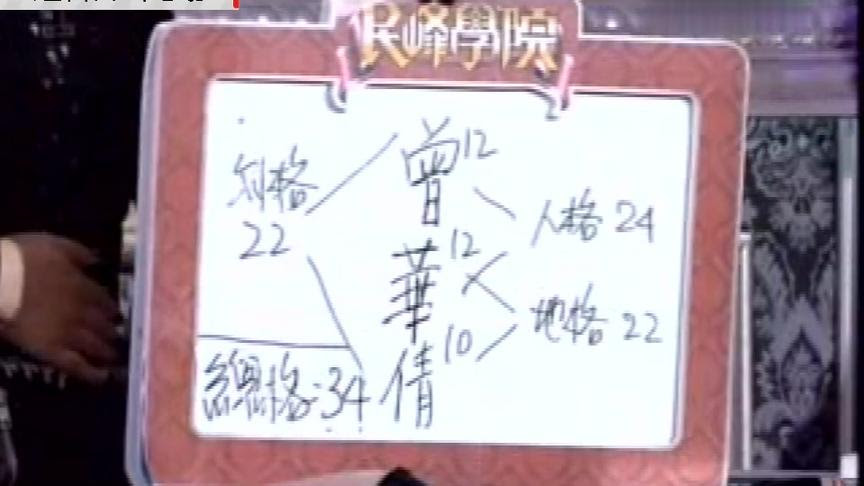 民峰學院
曾 12
外格
22
人格 24
華 12
地格 22
倩 10
總格:34